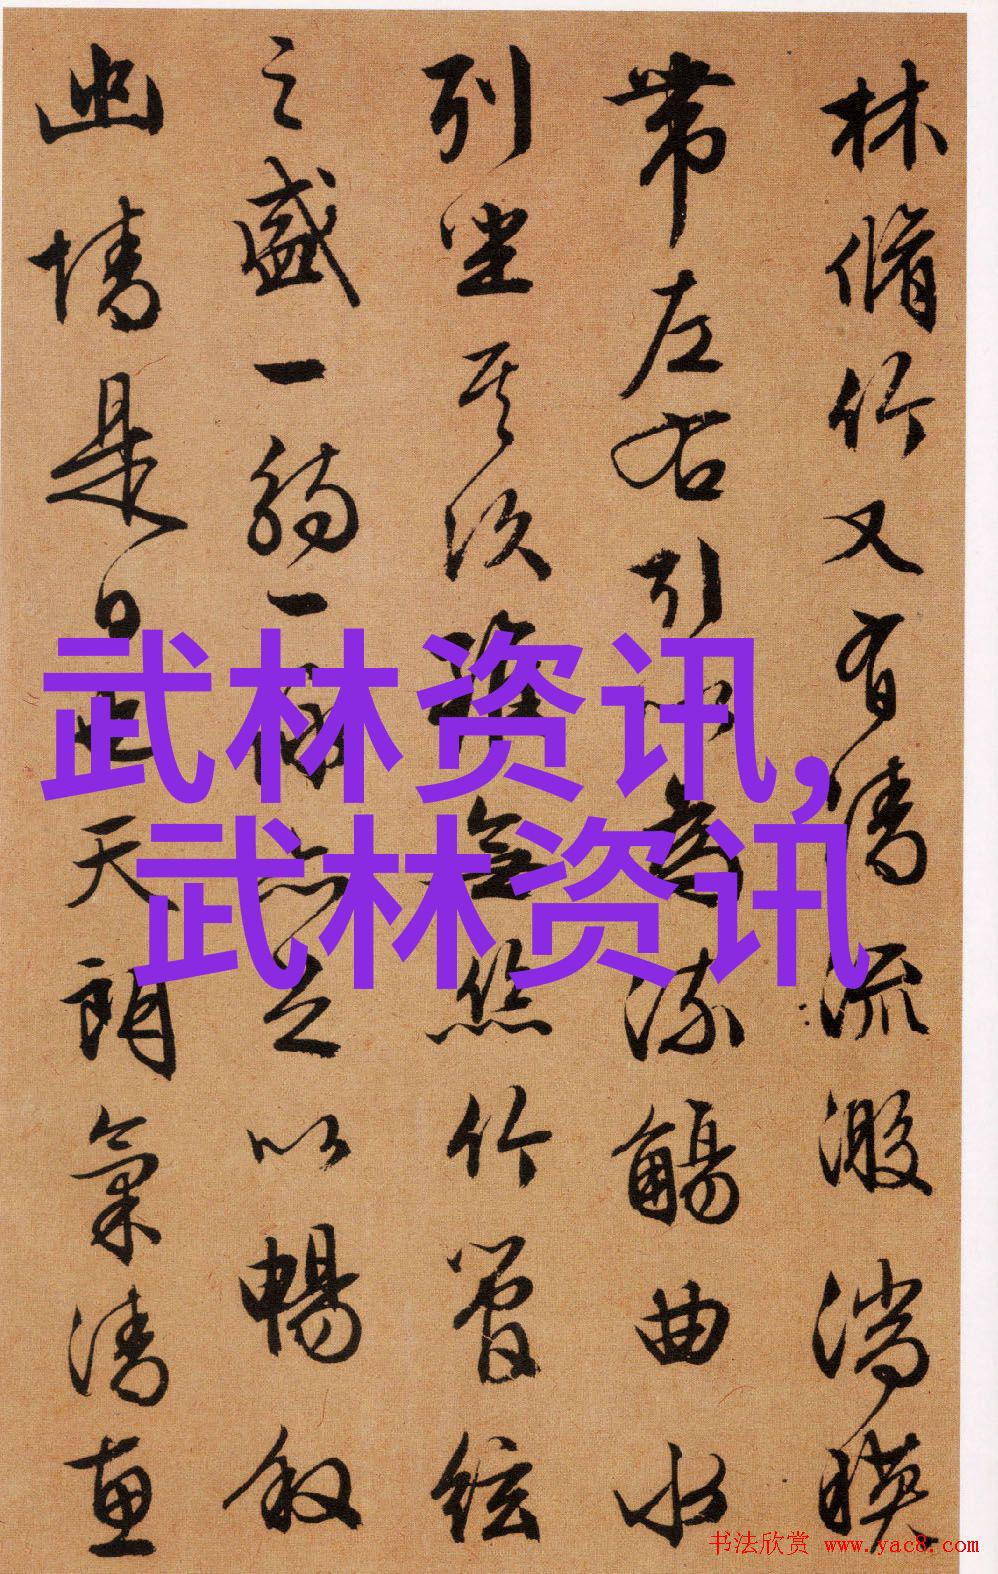 林脩竹又有清流激湍暎
帶左右引以為流觴曲水
列坐其次雖無絲竹管絃
之盛一觴一詠亦足以暢敘
幽情是日也天朗氣清惠
武林资讯,
武林资讯
书法欣赏 www.yac8.com